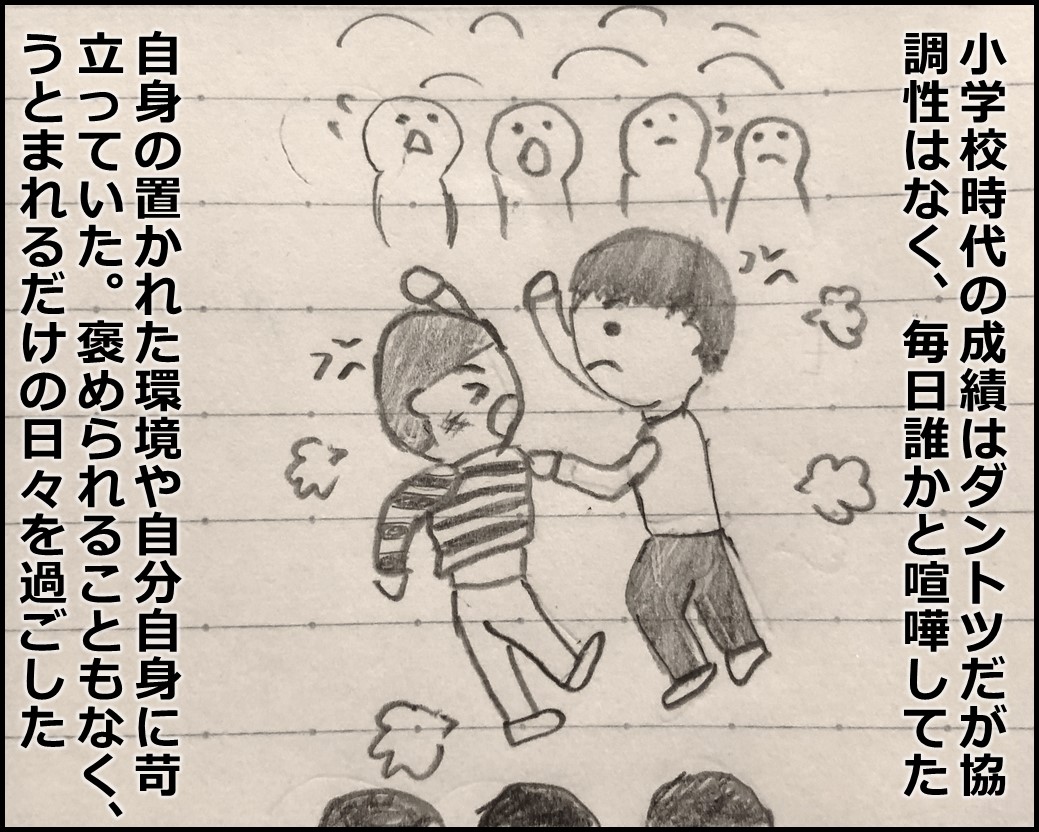 小学校時代の成績はダントツだが協
調性はなく、毎日誰かと喧嘩してた
自身の置かれた環境や自分自身に苛
立っていた。褒められることもなく、
うとまれるだけの日々を過ごした